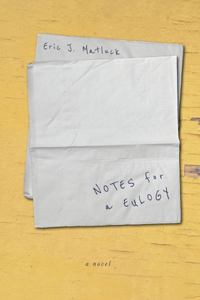 Eric J. Matlack
NOTES for
a EULOGY
a novel